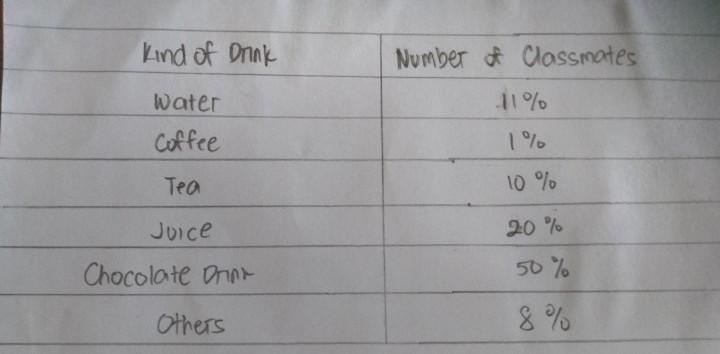 Kind of Drink Number of Classmates
Water 11%
Coffee 1%
Tea 10%
Juice 20%
Chocolate Drink 50%
Others 8%